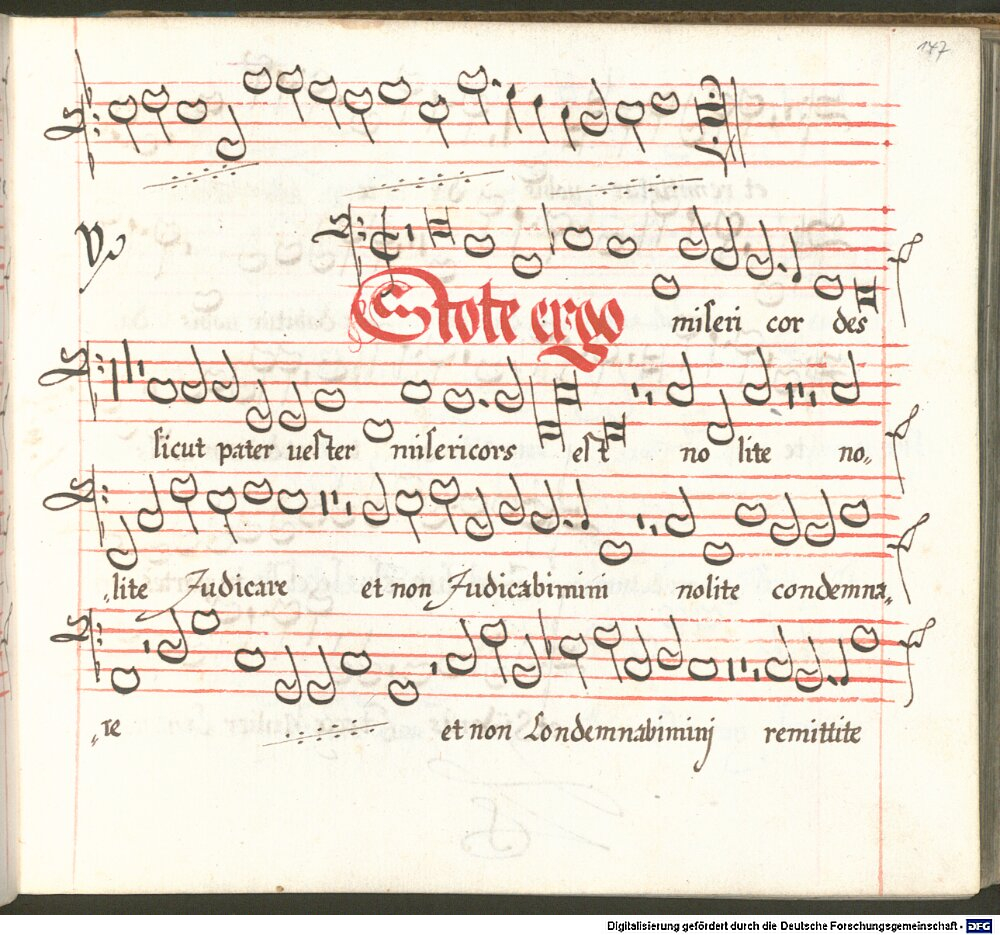 147
Vo
Estote ergo miseri cor des
sicut pater uester misericors est no lite no„
„lite Judicare et non Judicabimini nolite condemna„
„re et non Condemnabiminj remittite
Digitalisierung gefördert durch die Deutsche Forschungsgemeinschaft - DFG